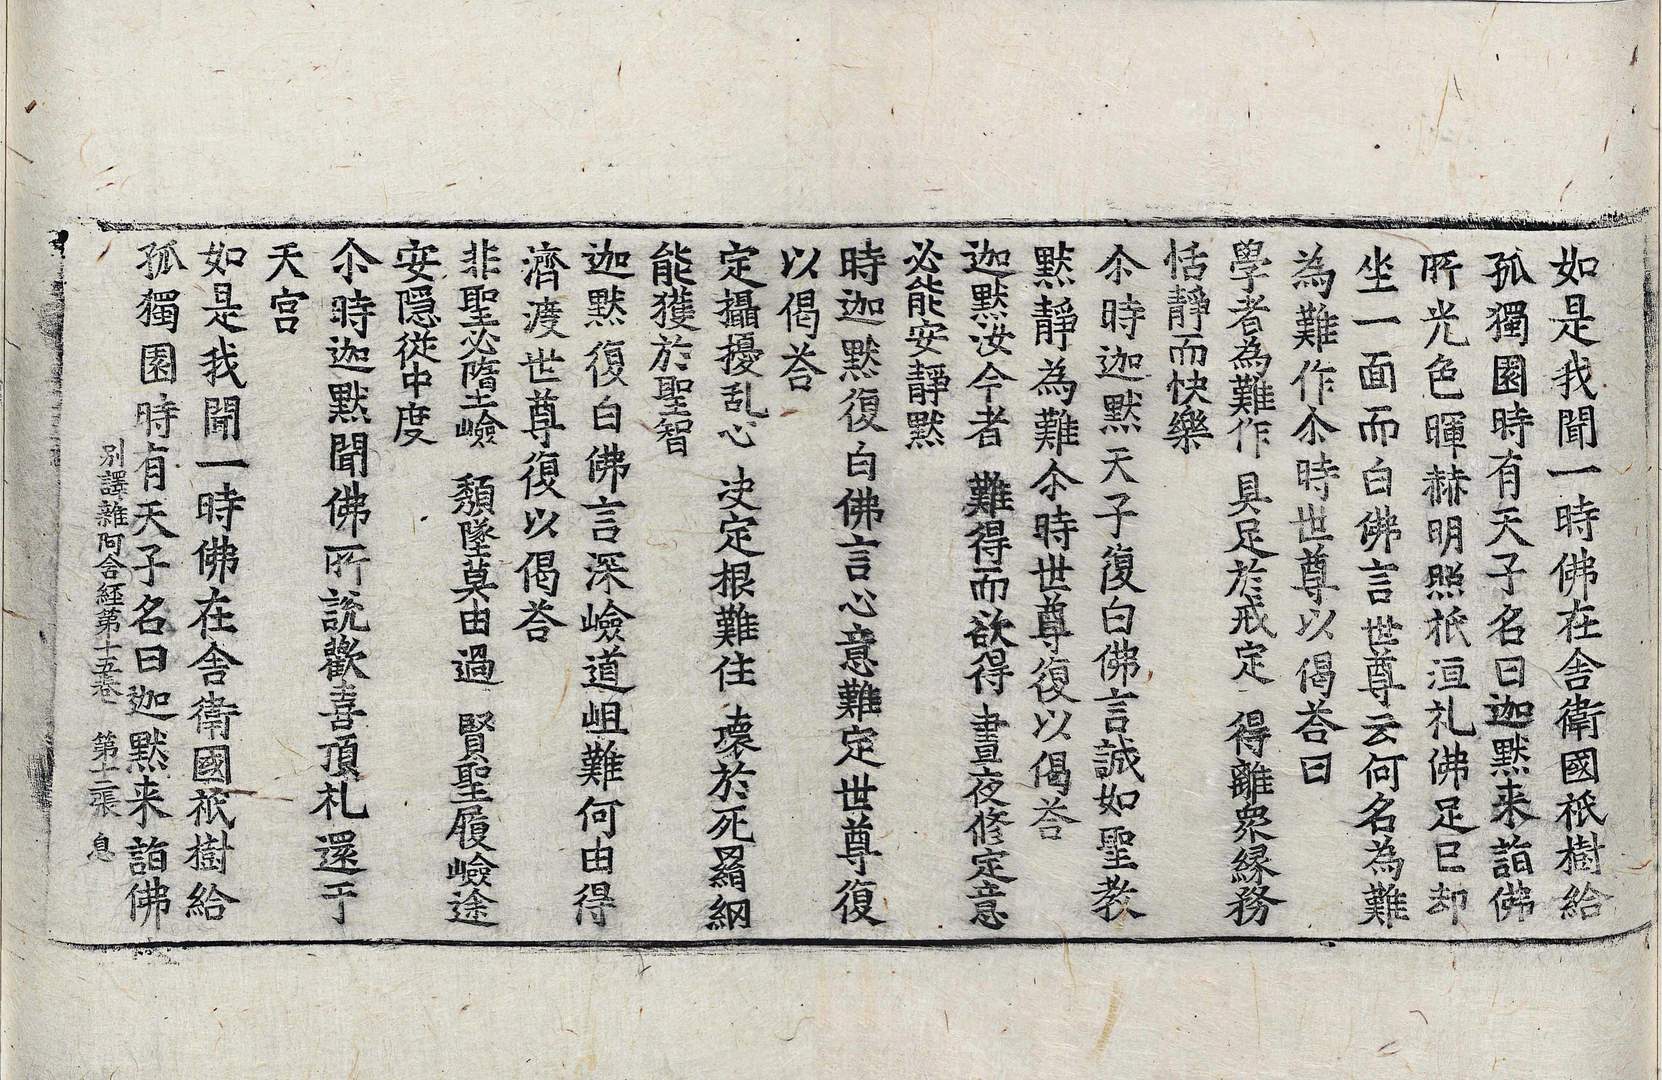 如是我聞一時佛在舍衛國祇樹給
孤獨園時有天子名曰迦默来詣佛
所光色暉赫明照祇洹礼佛足已却
坐一面而白佛言世尊云何名為難
為難作尒時世尊以偈荅曰
學者為難作 具足於戒定 得離眾縁務
恬靜而快樂
尒時迦默天子復白佛言誠如聖教
默靜為難尒時世尊復以偈荅
迦默汝今者 難得而欲得 晝夜修定意
必能安靜默
時迦默復白佛言心意難定世尊復
以偈荅
定攝擾乱心 决定根難住 壊於死羂網
能獲於聖智
迦默復白佛言深嶮道岨難何由得
濟渡世尊復以偈荅
非聖必墮嶮 頽墜莫由過 賢聖履嶮途
安隱從中度
尒時迦默聞佛所說歡喜頂礼還于
天宫
如是我聞一時佛在舍衛國祇樹給
孤獨園時有天子名曰迦默来詣佛
別譯雜阿含經第十五卷 第十二張 息